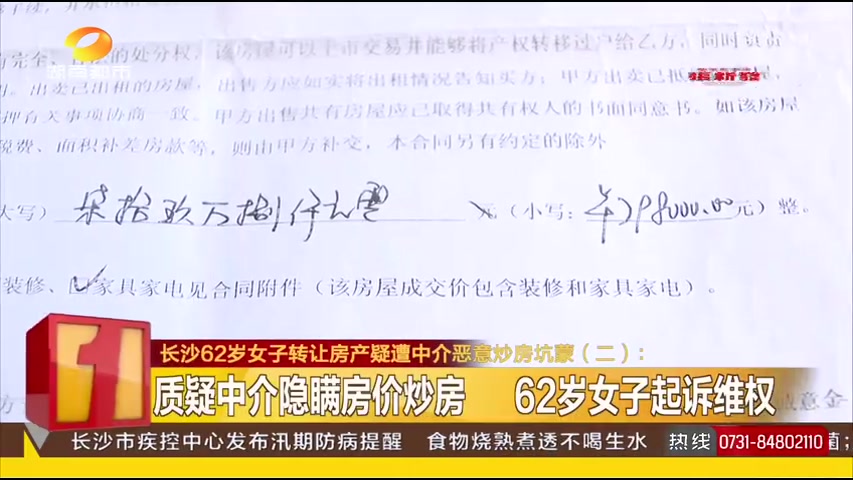 有完全、合法的处分权，该房屋可以上市交易并能够将产权转移过户给乙方。同时负责
湖南都市
出卖已出租的房屋，出售方应如实将出租情况告知买方；甲方出卖已抵押房屋，
押有关事项协商一致。甲方出售共有房屋应已取得共有权人的书面同意书。如该房屋
税费、面积补差房款等，则由甲方补交，本合同另有约定的除外
大写）柒拾玖万捌仟元整 元（小写：¥798000.00元）整。
装修、☑家具家电见合同附件（该房屋成交价包含装修和家具家电）。
1
长沙62岁女子转让房产疑遭中介恶意炒房坑蒙（二）：
质疑中介隐瞒房价炒房 62岁女子起诉维权
意金
长沙市疾控中心发布汛期防病提醒 食物烧熟煮透不喝生水 热线 0731-84802110 菌；